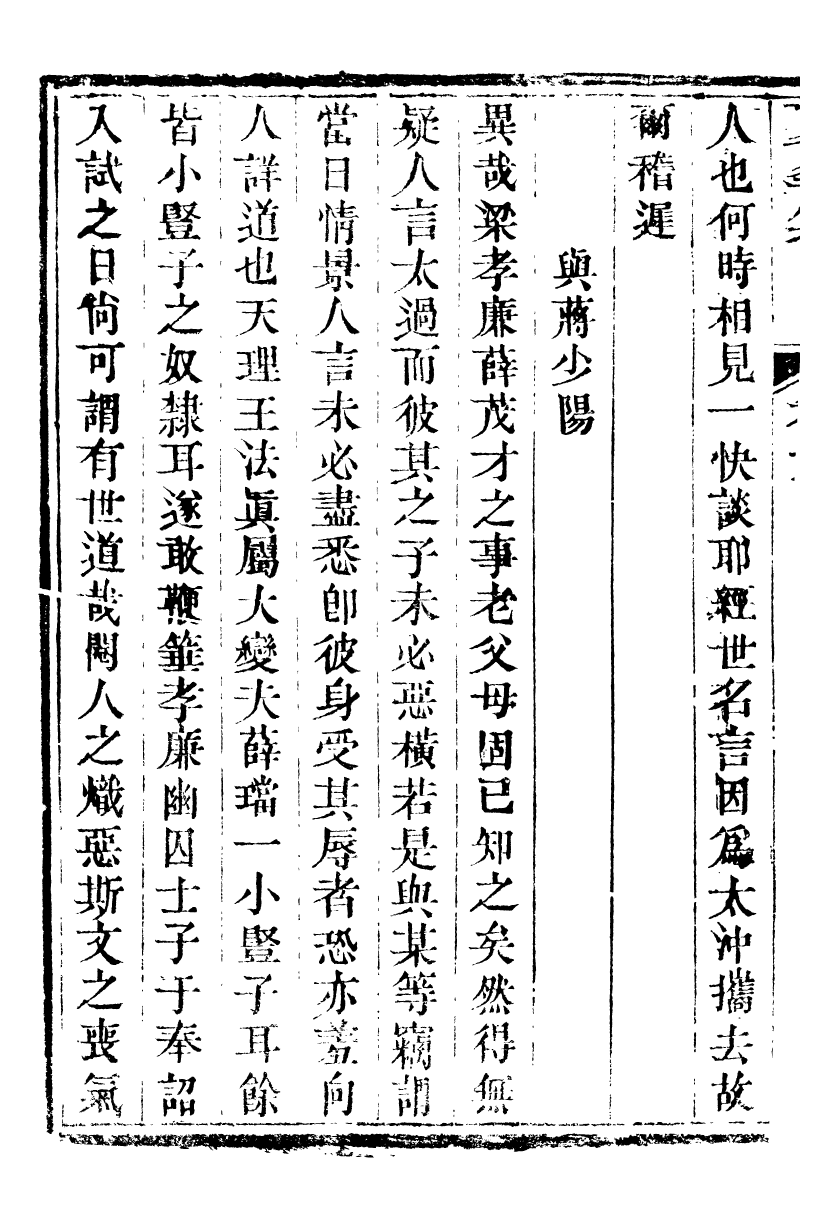 人也何時相見一快談耶經世名言因爲太沖攜去故
爾稽遲
與蔣少陽
異哉梁孝廉薛茂才之事老父母固已知之矣然得無
疑人言太過而彼其之子未必惡橫若是與某等竊謂
當日情景人言未必盡悉卽彼身受其辱者恐亦羞向
人詳道也天理王法眞屬大變夫薛璫一小豎子耳餘
皆小豎子之奴隸耳遂敢鞭箠孝廉幽囚士子于奉詔
入試之日尙可謂有世道哉閹人之熾惡斯文之喪氣